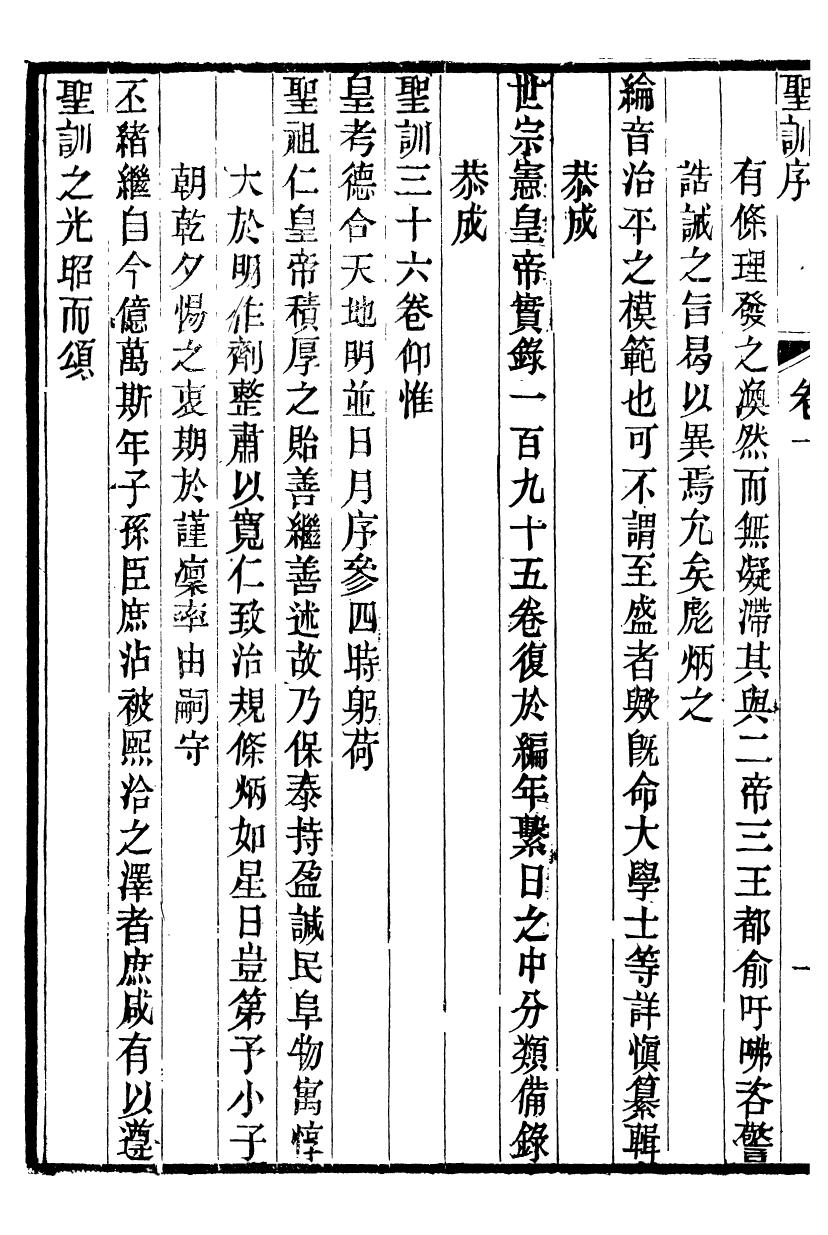 聖訓序 卷一 一
有條理發之渙然而無凝滯其與二帝三王都俞吁咈咨警
誥誡之旨曷以異焉允矣彪炳之
綸音治平之模範也可不謂至盛者歟旣命大學士等詳愼纂輯
恭成
世宗憲皇帝實錄一百九十五卷復於編年繫日之中分類備錄
恭成
聖訓三十六卷仰惟
皇考德合天地明並日月序參四時躬荷
聖祖仁皇帝積厚之貽善繼善述故乃保泰持盈諴民阜物寓惇
大於明作劑整肅以寬仁致治規條炳如星日豈第予小子
朝乾夕惕之衷期於謹凜率由嗣守
丕緒繼自今億萬斯年子孫臣庶沾被熙洽之澤者庶咸有以遵
聖訓之光昭而頌